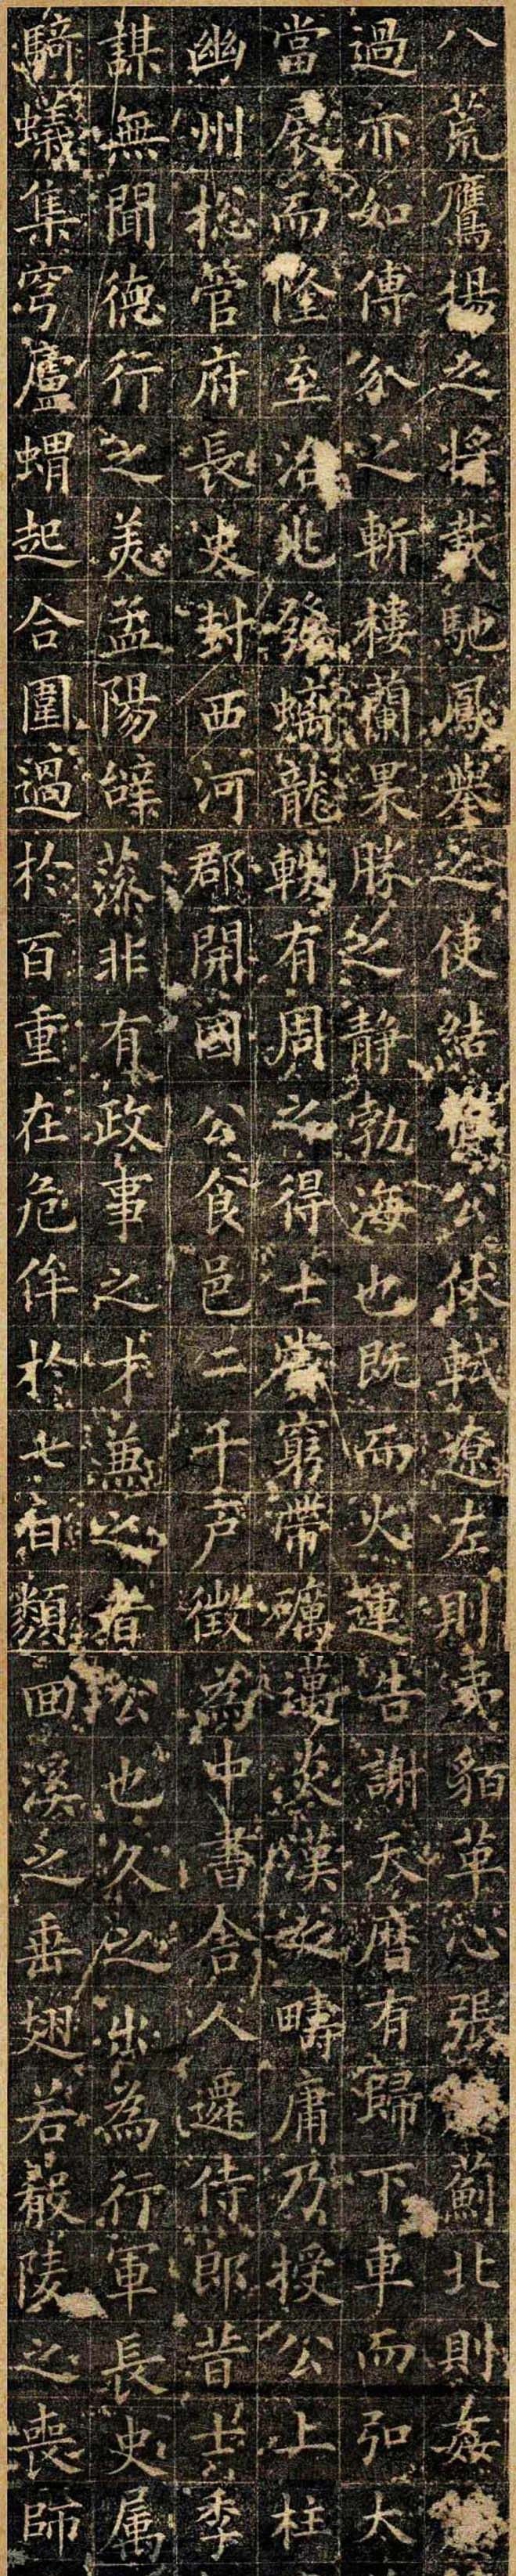 八荒鷹揚之將載馳鳳舉之使結公伏軾遼左則夷貊革心張薊北則姦
過亦如傅介之斬樓蘭果勝之静勃海也既而火運告謝天曆有歸下車而弘太
當扆而隆至治兆發螭龍軼有周之得士賞窮帶礪邁炎漢之疇庸乃授公上柱
幽州揔管府長史封西河郡開國公食邑二千户徵為中書舍人遷侍郎昔士季
謀無聞德行之美孟陽辭藻非有政事之才兼之者公也久之出為行軍長史属
騎蟻集穹廬蝟起合圍過於百重在危侔於七百類回溪之垂翅若嚴陵之喪師